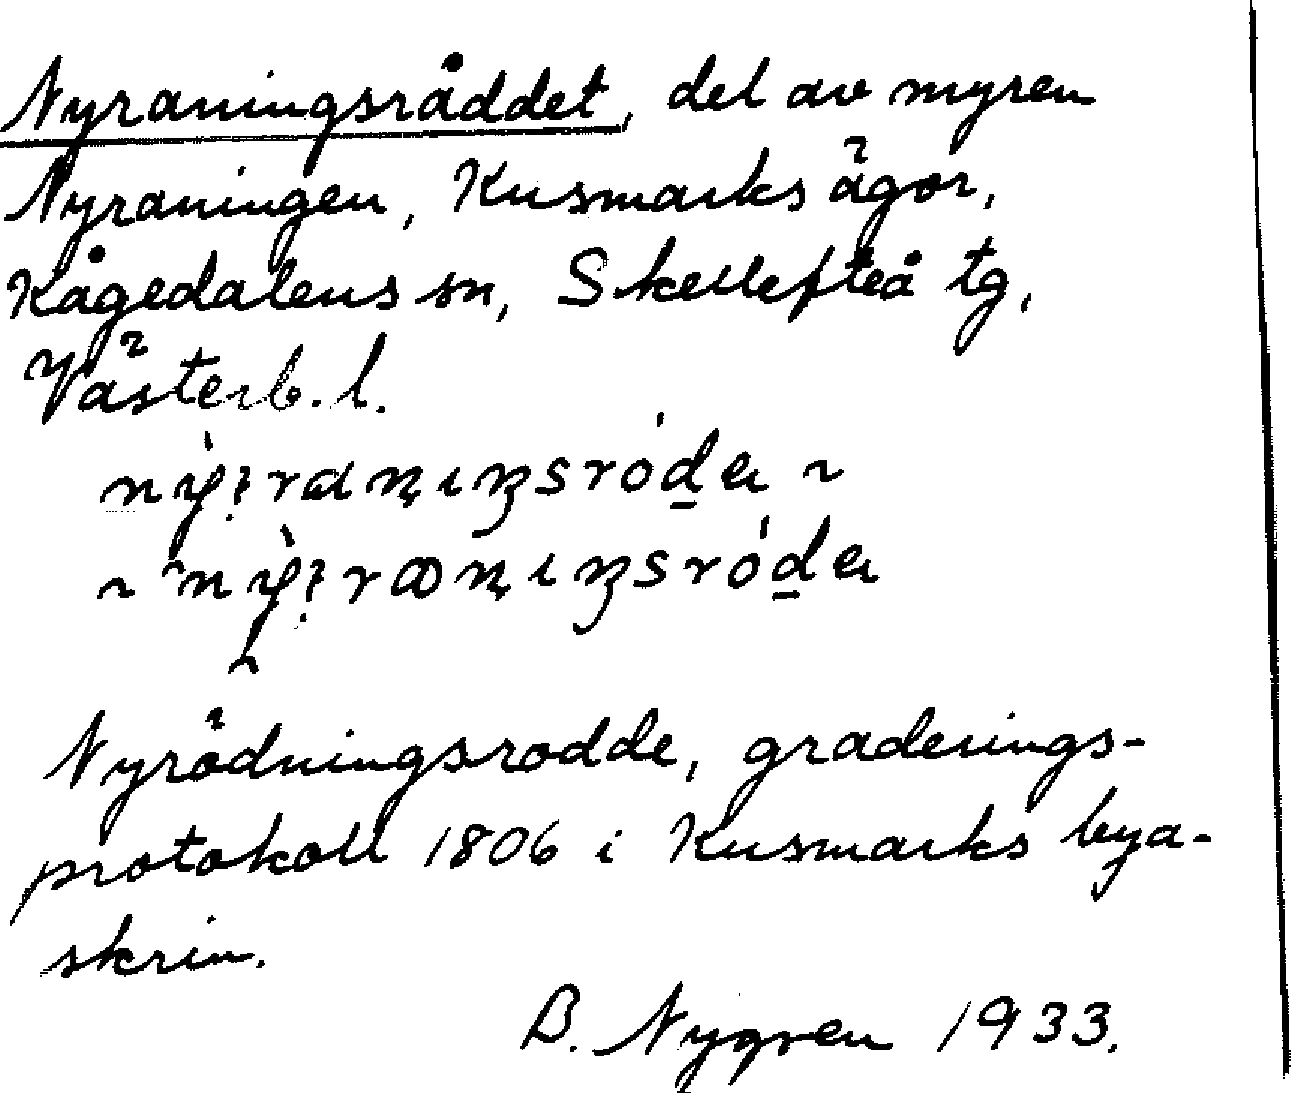 Nyraningsråddet, del av myren
Nyraningen, Kusmarks ägor,
Kågedalens sn, Skellefteå tg,
Västerb. l.
~
~
Nyrödningsrodde, graderings-
protokoll 1806 i Kusmarks bya-
skrin.
B. Nygren 1933.